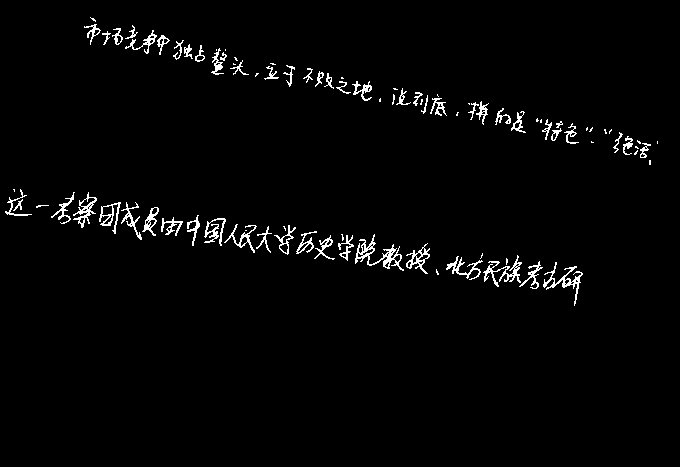 市场竞争中独占鳌头,立于不败之地,说到底,拼的是“特色”、“绝活”
这一考察团成员由中国人民大学历史学院教授、北方民族考古研